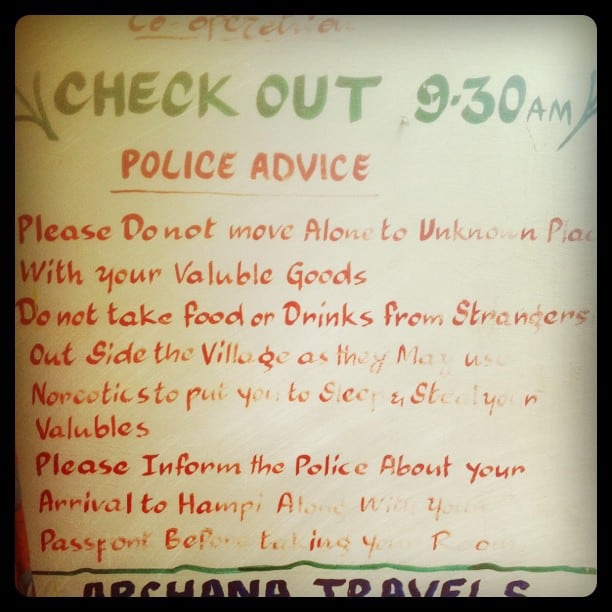 Co-operation
CHECK OUT 9-30 AM
POLICE ADVICE
Please Do not move Alone to Unknown Plac
With your Valuble Goods
Do not take food or Drinks from Strangers
Out Side the Village as they May use
Norcotics to put you to Sleep & Steal your
Valubles
Please Inform the Police About your
Arrival to Hampi Along With Your
Passport Before taking your Room
ARCHANA TRAVELS